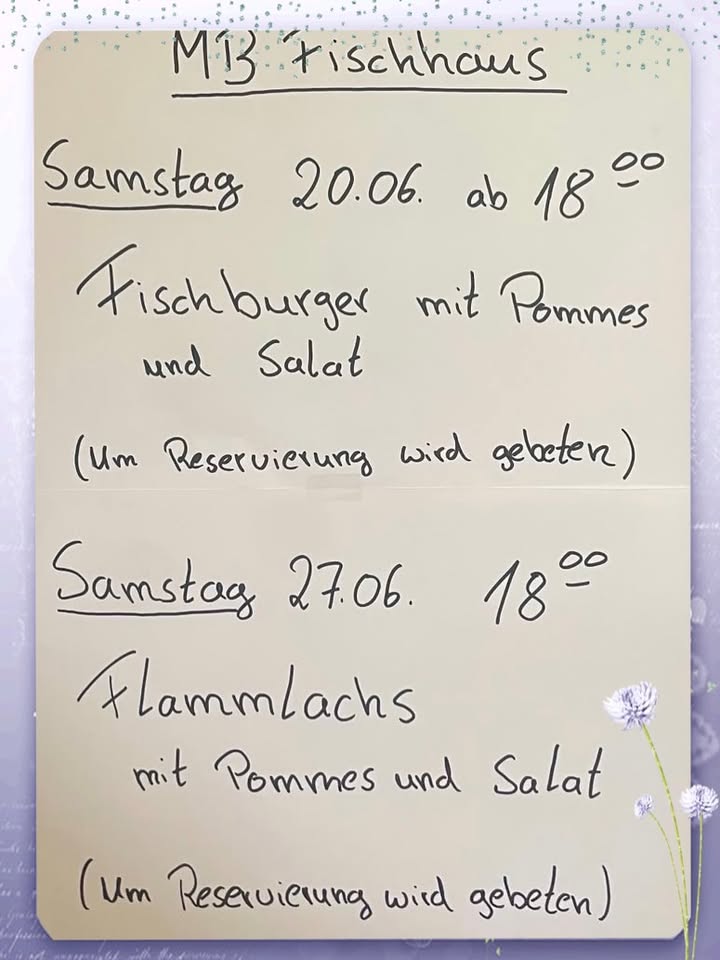 MB Fischhaus
Samstag 20.06. ab 18⁰⁰
Fischburger mit Pommes
und Salat
(Um Reservierung wird gebeten)
Samstag 27.06. 18⁰⁰
Flammlachs
mit Pommes und Salat
(Um Reservierung wird gebeten)